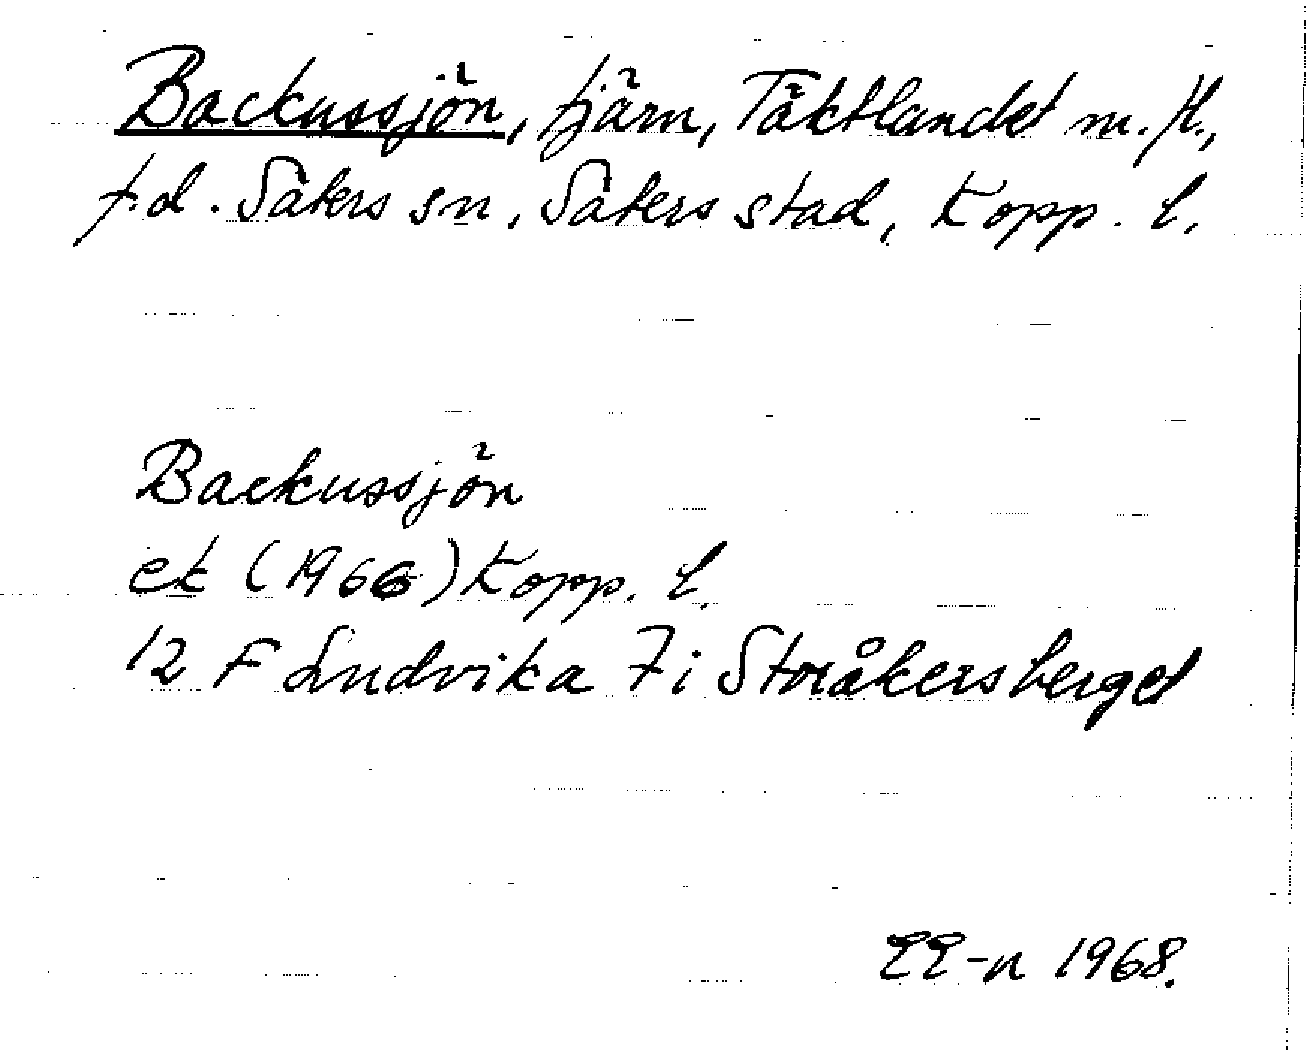 Backussjön, tjärn, Täktlandet m.fl.,
f.d. Säters sn, Säters stad, Kopp. l.
Backussjön
ek (1966) Kopp. l.
12 F Ludvika 7 i Storåkersberget
EE-n 1968.